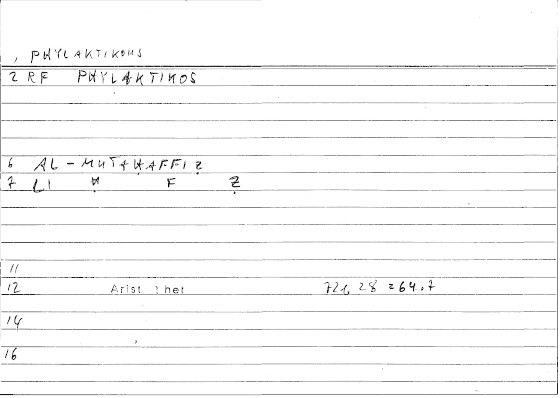 , PHYLAKTIKOUS
2 RF PHYLAKTIKOS
6 AL-MUTAḤAFFIẒ
7 LI Ḥ F Ẓ
11
12 Arist het 72b 28 = 64.7
14
16